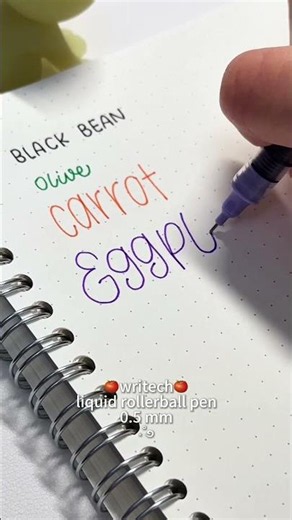 BLACK BEAN
Olive
carrot
Eggpl
writech
liquid rollerball pen
0.5 mm